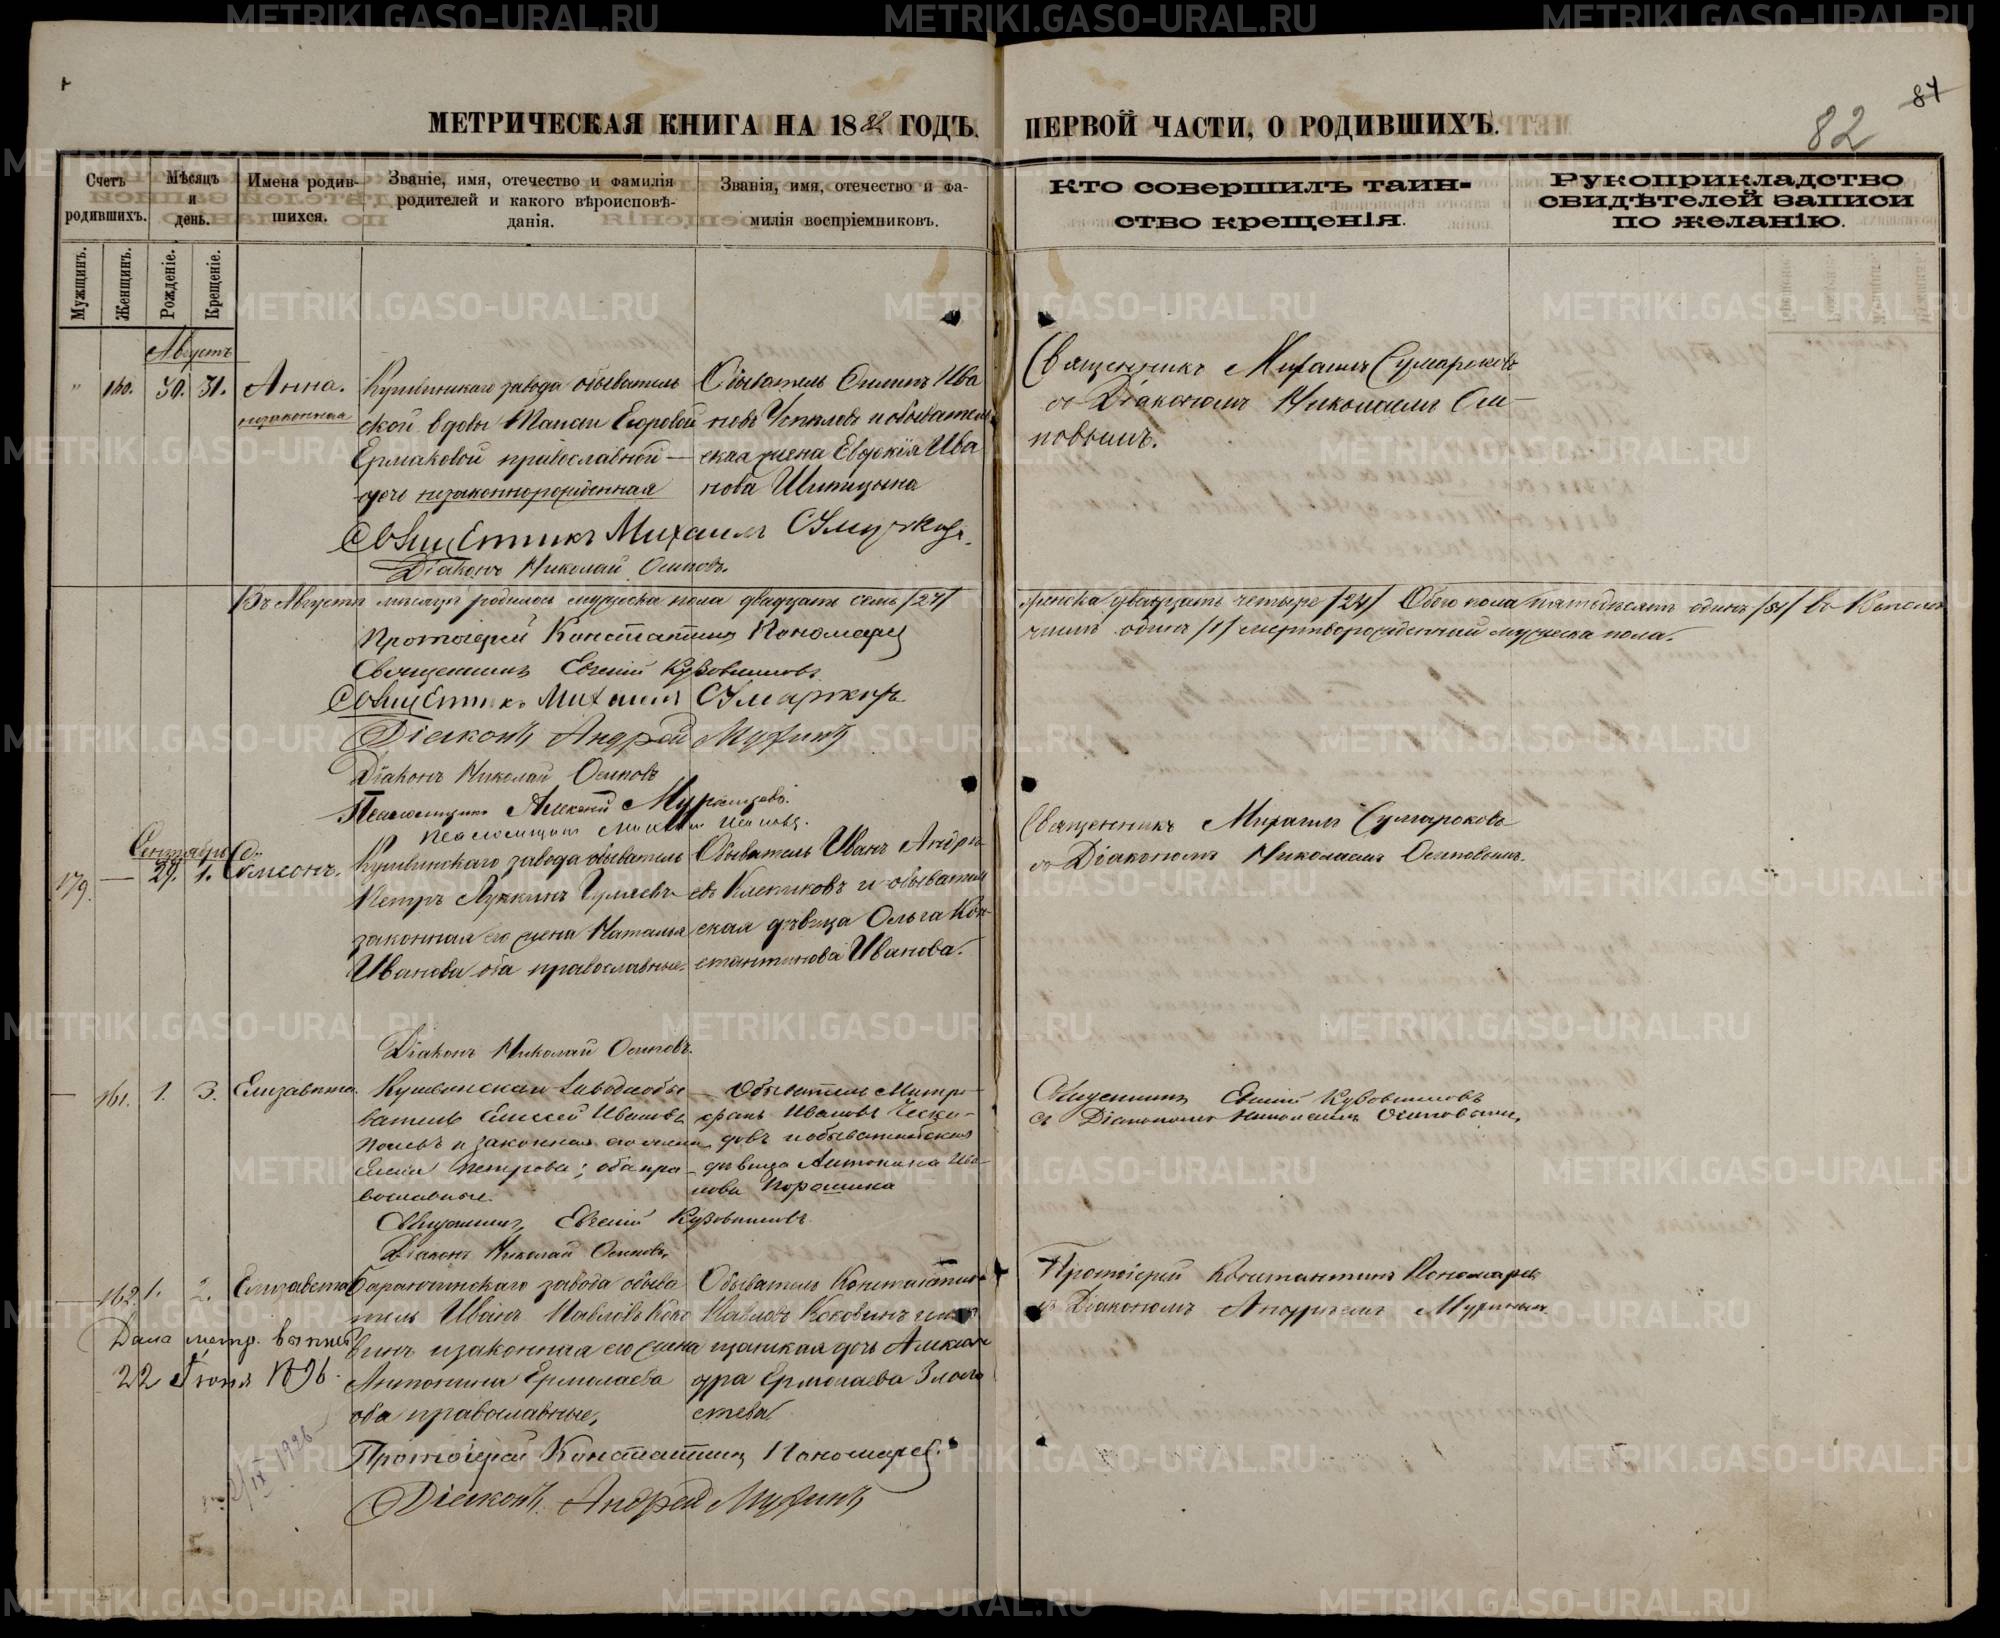 МЕТРИЧЕСКАЯ КНИГА НА 1882 ГОДЪ.
ПЕРВОЙ ЧАСТИ, О РОДИВШИХЪ.
84
82
Счетъ родившихъ.
Мѣсяцъ и день.
Имена родив-
шихся.
Званіе, имя, отечество и фамилія
родителей и какого вѣроисповѣ-
данія.
Званія, имя, отечество и фа-
милія воспріемниковъ.
Кто совершилъ таин-
ство крещенія.
Рукоприкладство
свидѣтелей записи
по желанію.
Мужчинъ.
Женщинъ.
Рожденіе.
Крещеніе.
Августъ
160. 30. 31. Анна.
незаконная
Кушвинскаго завода обыватель
ской вдовы Таисіи Егоровой
Ермаковой православной —
дочь незаконнорожденная
Обыватель Филипъ Ива
новъ и обыватель
ская жена Евдокія Ива
нова Шипицына
Священникъ Михаилъ Сумароковъ
съ Діакономъ Николаемъ Оси-
повымъ.
Священникъ Михаилъ Сумароковъ.
Діаконъ Николай Осиповъ.
Въ Августѣ мѣсяцѣ родилось мужеска пола двадцать семь /27/
женска двадцать четыре /24/ Обоего пола пятьдесятъ одинъ /51/ въ томъ
числѣ одинъ /1/ мертворожденный мужеска пола.
Протоіерей Константинъ Пономаревъ
Священникъ Евгеній Кузовниковъ
Священникъ Михаилъ Сумароковъ
Діаконъ Андрей Мухинъ
Діаконъ Николай Осиповъ
Псаломщикъ Алексій
Псаломщикъ
Сентябрь
179. — 29. 1. Симеонъ.
Кушвинскаго завода обыватель
Петръ Лукинъ Гуляевъ
законная его жена Наталья
Иванова оба православные.
Обыватель Иванъ Андре
евъ и обыватель
ская дѣвица Ольга Кон-
стантинова Иванова.
Священникъ Михаилъ Сумароковъ
съ Діакономъ Николаемъ Осиповымъ.
Діаконъ Николай Осиповъ.
— 161. 1. 3. Елизавета.
Кушвинскаго завода обы
ватель Елисей Ивановъ
и законная его жена
Петрова; оба пра-
вославные.
Обыватель Митро-
фанъ Ивановъ
и обывательская
дѣвица Антонина Ива-
нова Порошина
Священникъ Евгеній Кузовниковъ
съ Діакономъ Николаемъ Осиповымъ.
Священникъ Евгеній Кузовниковъ.
Діаконъ Николай Осиповъ.
162. 1. 2. Елизавета
Баранчинскаго завода обыва
тель Иванъ Павловъ Коко
винъ и законная его жена
Антонина Ермолаева
оба православные,
Обыватель Константинъ
Павловъ Коковинъ и
дочь Алексан
дра Ермолаева Злого
стева
Протоіерей Константинъ Пономаревъ
съ Діакономъ Андреемъ Мухинымъ
Дана метр. выпись
22 Іюня 1896.
IX 1926
Протоіерей Константинъ Пономаревъ.
Діаконъ Андрей Мухинъ
METRIKI.GASO-URAL.RU